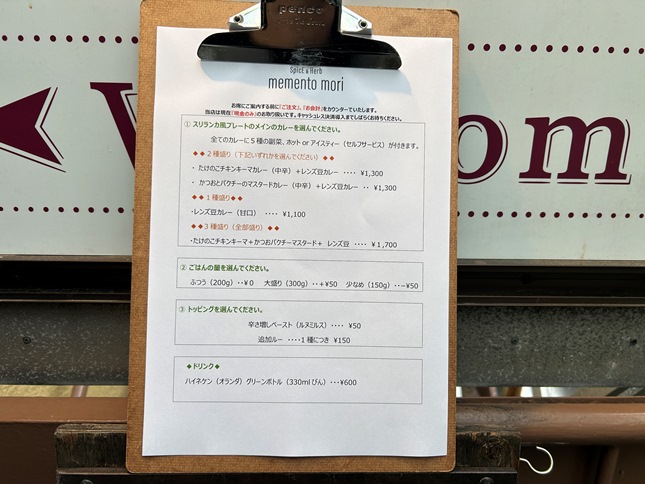 penco
Spice & Herb
memento mori
お席にご案内する前に「ご注文」、「お会計」をカウンターでいたします。
当店は現在「現金のみ」のお取り扱いです。キャッシュレス決済導入までしばらくお待ちください。
① スリランカ風プレートのメインのカレーを選んでください。
全てのカレーに5種の副菜、ホット or アイスティー（セルフサービス）が付きます。
◆◆2種盛り（下記いずれかを選んでください）◆◆
・たけのこチキンキーマカレー（中辛）＋レンズ豆カレー ‥‥ ¥1,300
・かつおとパクチーのマスタードカレー（中辛）＋レンズ豆カレー ‥ ¥1,300
◆◆1種盛り◆◆
・レンズ豆カレー（甘口） ‥‥ ¥1,100
◆◆3種盛り（全部盛り）
・たけのこチキンキーマ＋かつおパクチーマスタード＋ レンズ豆 ‥‥ ¥1,700
② ごはんの量を選んでください。
ふつう（200g）‥¥0 大盛り（300g）‥＋¥50 少なめ（150g）‥−¥50
③ トッピングを選んでください。
辛さ増しペースト（ルヌミルス）‥‥ ¥50
追加ルー ‥‥1種につき ¥150
◆ドリンク◆
ハイネケン（オランダ）グリーンボトル（330mlびん）‥‥¥600
om